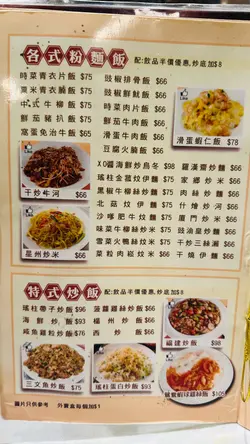 各式粉麵飯 配:飲品半價優惠,炒底加$8
時菜青衣片飯 $75
粟米青衣腩飯 $75
中式牛柳飯 $75
鮮茄豬扒飯 $75
富蛋免治牛飯 $65
豉椒排骨飯 $66
豉椒鮮魷飯 $66
時菜肉片飯 $66
鮮茄牛肉飯 $66
滑蛋牛肉飯 $66
豆腐火腩飯 $66
滑蛋蝦仁飯 $78
干炒牛河 $66
星州炒米 $66
XO醬海鮮炒烏冬 $98
瑤柱金菇炆伊麵 $66
黑椒牛柳絲炒麵 $66
北菇炆伊麵 $66
沙嗲肥牛炆麵 $66
味菜牛柳絲炒米 $66
雪菜火鴨絲炆米 $66
菜粒肉崧炆米 $66
羅漢齋炒麵 $66
家鄉炒米 $66
肉絲炒麵 $66
什燴炒河 $66
廈門炒米 $66
豉油皇炒麵 $66
干炒三絲瀨 $66
干炒伊麵 $66
特式炒飯 配:飲品半價優惠,炒底加$8
瑤柱帶子炒飯 $96
海鮮炒飯 $93
咸魚雞粒炒飯 $75
菠蘿雞絲炒飯 $66
楊州炒飯 $66
西炒飯 $66
福建炒飯 $98
三文魚炒飯 $76
瑤柱蛋白炒飯 $93
鴛鴦蝦球雞絲飯 $105
圖片只供參考 外賣盒每個加$1